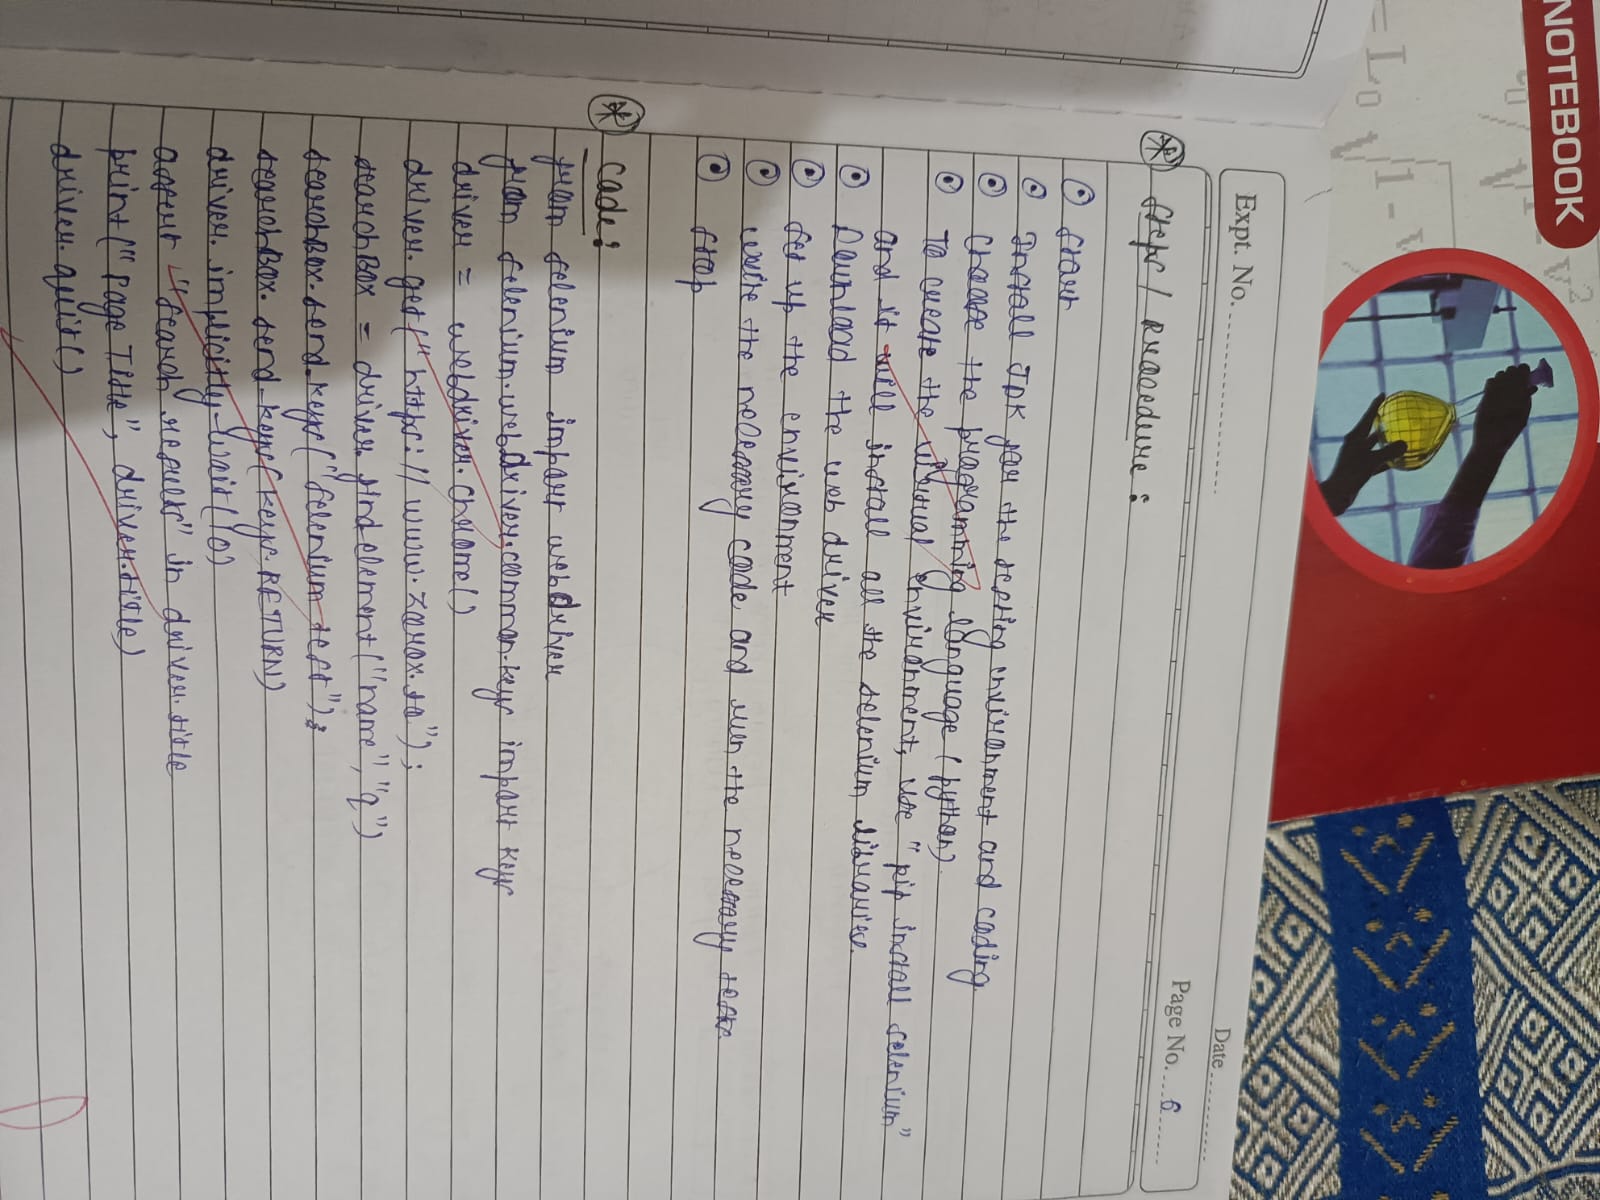 NOTEBOOK
Expt. No.
Date
Page No. 6
Steps / Procedure :
Start
Install JDK for the testing environment and coding.
Choose the programming language (python).
To create the virtual environment, use "pip install selenium"
and it will install all the selenium libraries.
Download the web driver
Set up the environment
Write the necessary code and run the necessary tests.
Stop
Code :
from selenium import webdriver
from selenium.webdriver.common.keys import keys
driver = webdriver.chrome()
driver.get("https://www.zorox.to");
searchBox = driver.find element("name", "q")
searchBox.send_keys("selenium test");
searchBox.send_keys(keys.RETURN)
driver.implicitly_wait(10)
assert "search results" in driver.title
print("Page Title", driver.title)
driver.quit()